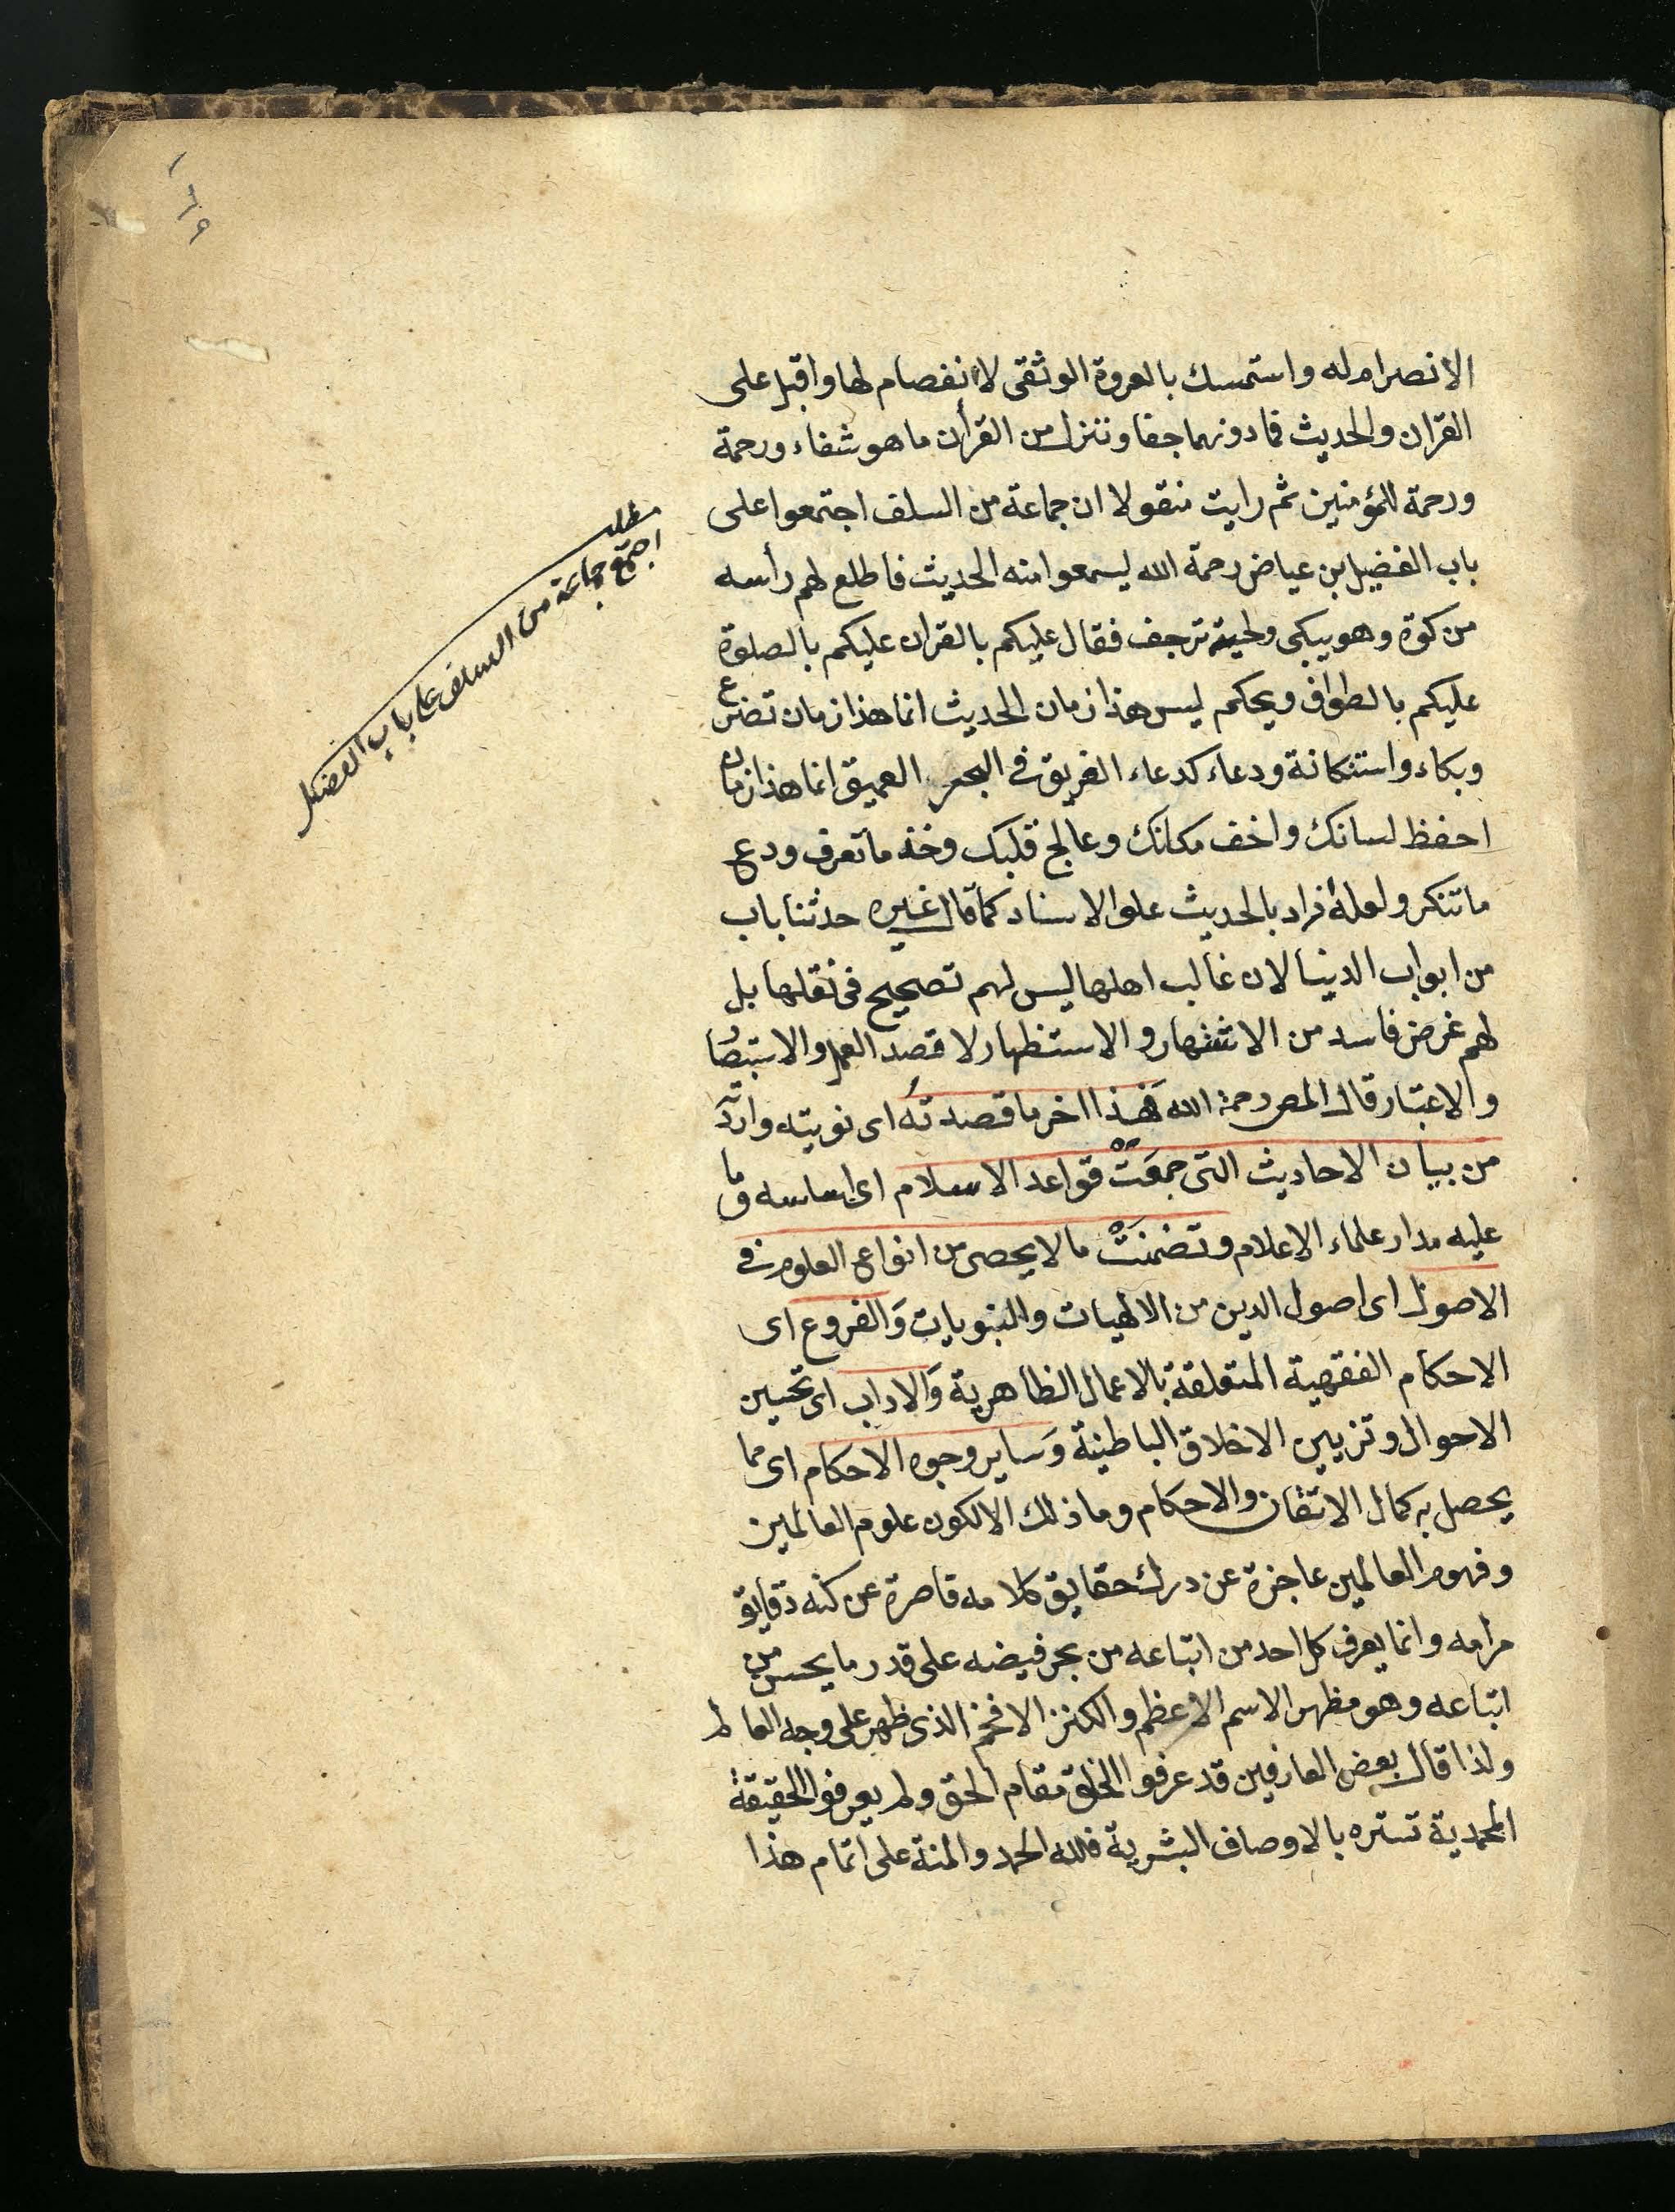 مطلب
اجتمع جماعة من السلف على باب الفضيل
الانصرام له واستمسك بالعروة الوثقى لا انفصام لها واقبل على
القرآن والحديث فما دونهما جفا وننزل من القرأن ما هو شفاء ورحمة
ورحمة للمؤمنين ثم رايت منقولا ان جماعة من السلف اجتمعوا على
باب الفضيل بن عياض رحمة الله ليسمعوا منه الحديث فاطلع لهم رأسه
من كوة وهو يبكى ولحيته ترجف فقال عليكم بالقران عليكم بالصلوة
عليكم بالطواف ويحكم ليس هذا زمان الحديث انما هذا زمان تضرع
وبكاء واستكانة ودعاء كدعاء الغريق فى البحر العميق انما هذا زمان
احفظ لسانك واخف مكانك وعالج قلبك وخذ ما تعرف ودع
ما تنكر ولعله اراد بالحديث علو الاسناد كما قال غيره حدثنا باب
من ابواب الدينا لان غالب اهلها ليس لهم تصحيح فى نقلها بل
لهم غرض فاسد من الاشتهار والاستظهار لا قصد العمل والاستبصا
والاعتبار قال المص رحمة الله فهذا اخر ما قصدته اى نويته واردت
من بيان الاحاديث التى جمعت قواعد الاسلام اى اساسه وما
عليه مدار علماء الاعلام وتضمنت ما لا يحصى من انواع العلوم فى
الاصول اى اصول الدين من الالهيات والنبويات والفروع اى
الاحكام الفقهية المتعلقة بالاعمال الظاهرية والاداب اى تحسين
الاحوال وتزيين الاخلاق الباطنية وساير وجوه الاحكام اى مما
يحصل به كمال الاتقان والاحكام وما ذلك الا لكون علوم العالمين
وفهوم العالمين عاجزة عن درك حقايق كلامه قاصرة عن كنه دقايق
مرامه وانما يعرف كل احد من اتباعه من بحر فيضه على قدر ما يحسن من
اتباعه وهو مظهر الاسم الاعظم والكنز الافخم الذى ظهر على وجه العالم
ولذا قال بعض العارفين قد عرفوا الخلق مقام الحق ولم يعرفوا الحقيقة
المحمدية تستره بالاوصاف البشرية فلله الحمد والمنة على اتمام هذا